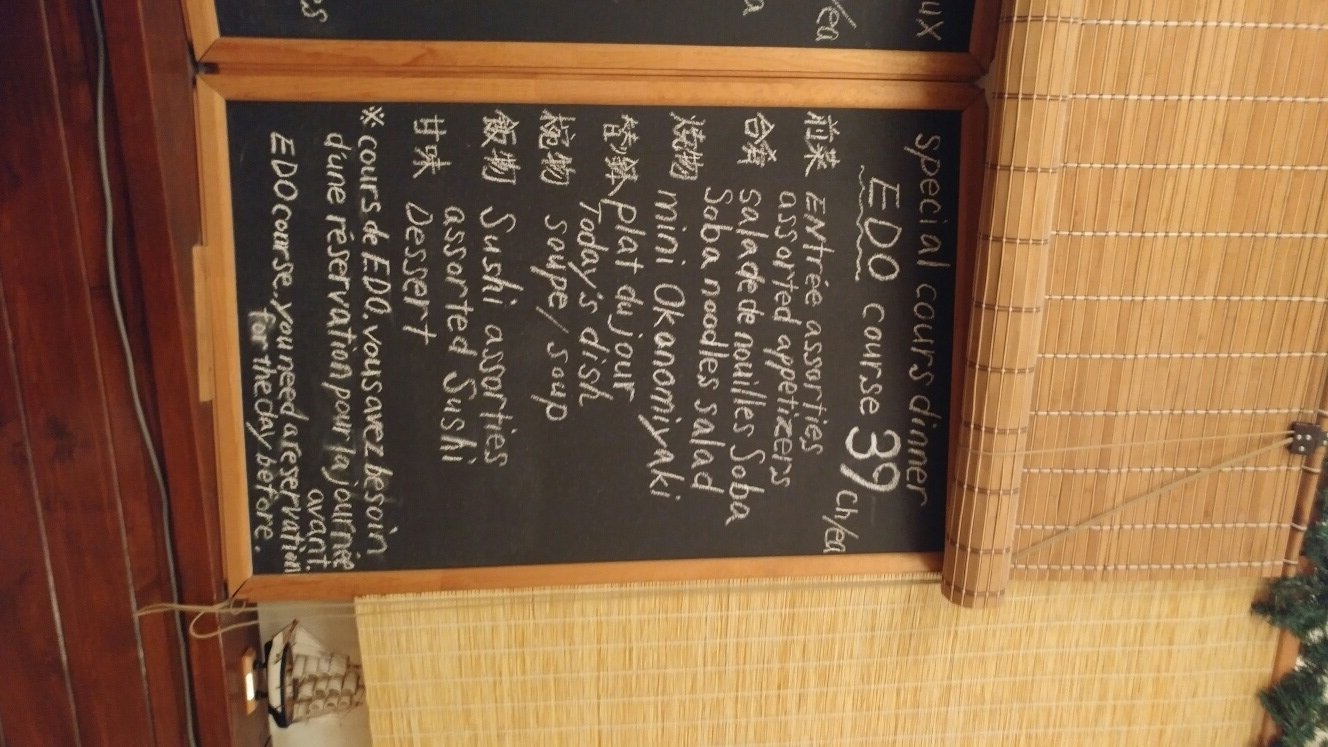 ux
/ea
a
es
special cours dinner
EDO course 39 ch/ea
前菜 ENtrée assorties
assorted appetizers
合肴 salade de nouilles Soba
Soba noodles salad
焼物 mini Okonomiyaki
plat du jour
Today's dish
椀物 soupe / soup
飯物 Sushi assorties
assorted Sushi
甘味 Dessert
※ cours de EDO, vous avez besoin
d'une réservation pour la journée
avant.
EDO course, you need a reservation
for the day before.